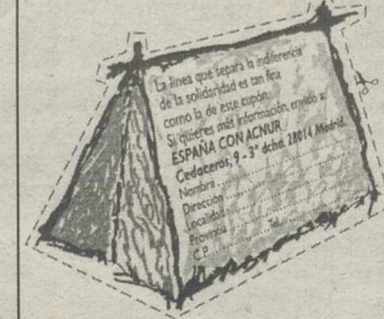 La línea que separa la indiferencia
de la solidaridad es tan fina
como la de este cupón.
Si quieres más información, envíalo a:
ESPAÑA CON ACNUR
Cedaceros, 9 - 3ª dcha. 28014 Madrid.
Nombre
Dirección
Localidad
Provincia
C.P. Tel.